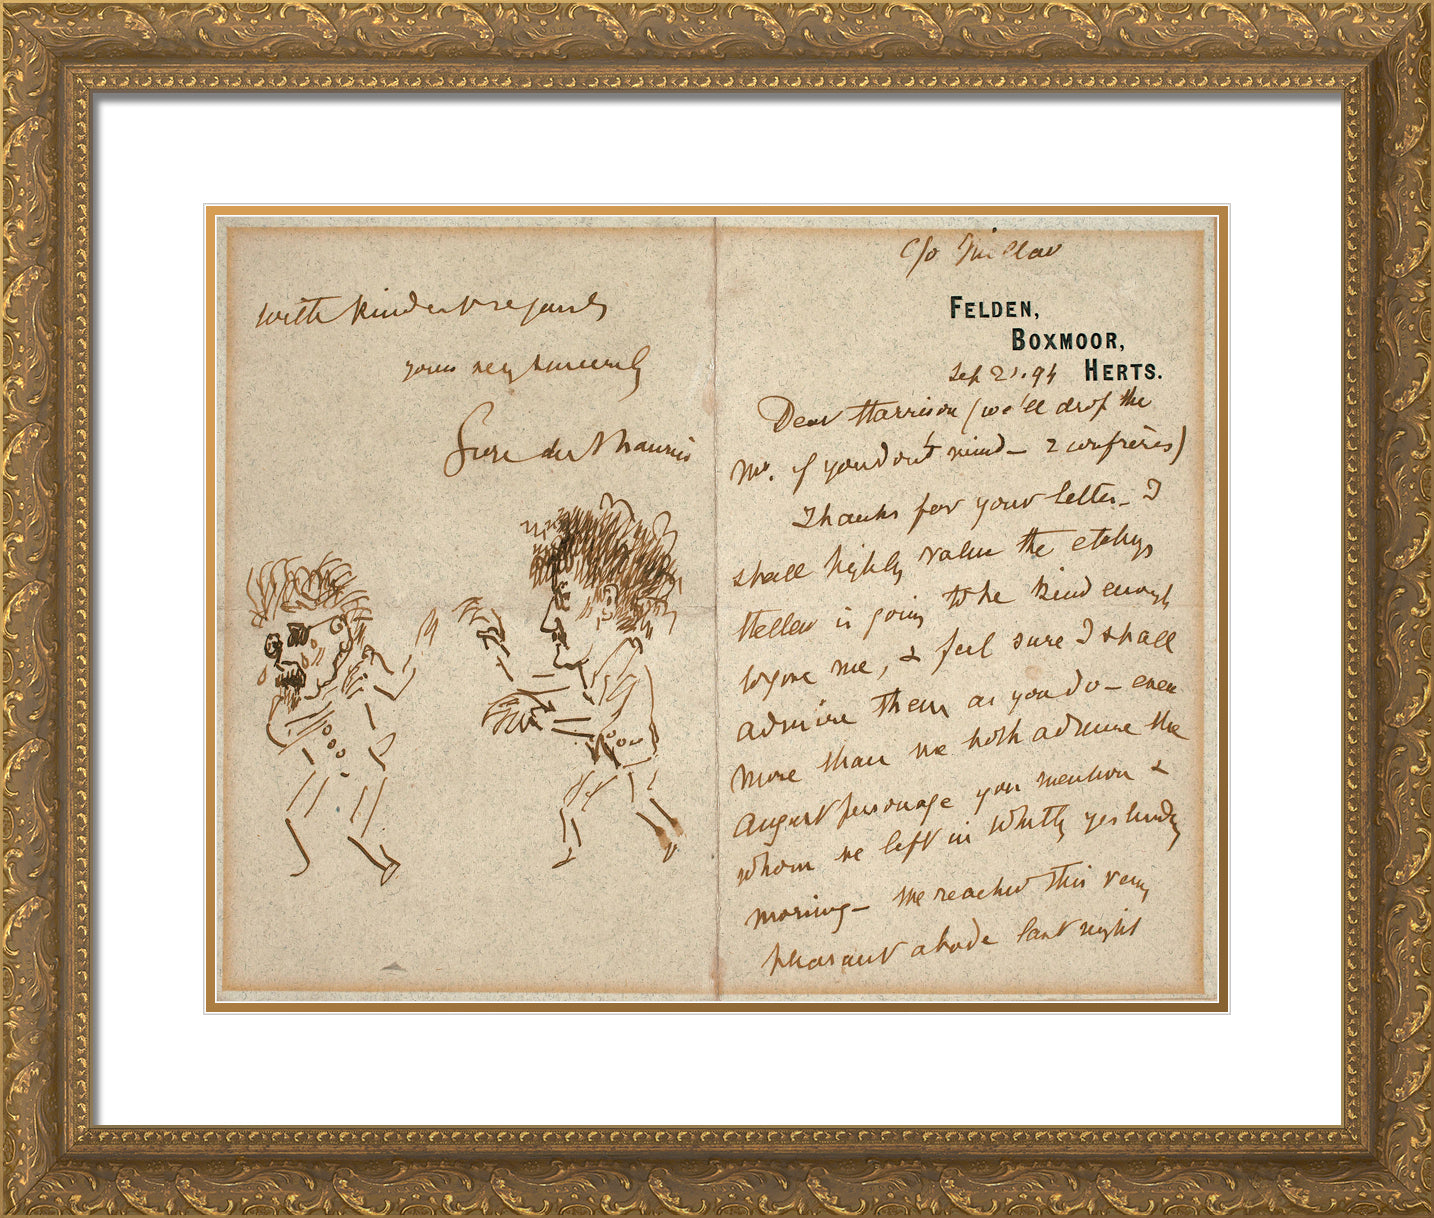 c/o Millar
FELDEN,
BOXMOOR,
HERTS.
Sep 21. 94
Dear Harrison (we'll drop the
Mr. if you don't mind – 2 confrères)
Thanks for your letter – I
shall highly value the etchings
Hellar is going to be kind enough
to give me, & feel sure I shall
admire them as you do – even
more than we both admire the
august personage you mention &
whom we left in Whitby yesterday
morning – We reached this very
pleasant abode last night
with kindest regards
yours very sincerely
du Maurier